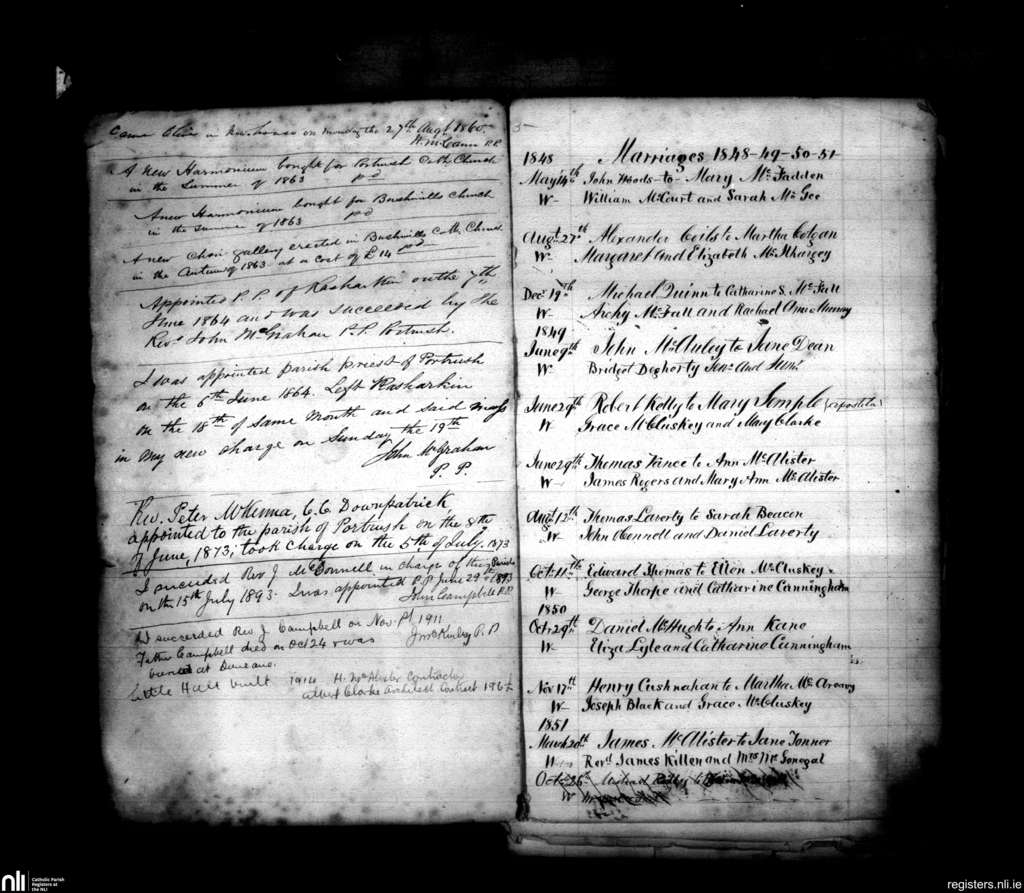 Came to live in new house on Monday the 27th Augt 1860.
Wm McCann P.P.
A new Harmonium bought for Portrush Cath. Church
in the Summer of 1863 pd
A new Harmonium bought for Bushmills Church
in the Summer of 1863 pd
A new Choir gallery erected in Bushmills Cath. Church
in the Autumn of 1863 at a cost of £14 pd
Appointed P.P. of Rasharkin on the 7th
June 1864 and was succeeded by the
Revd John McGrahan P.P. Portrush.
I was appointed parish priest of Portrush
on the 6th June 1864. Left Rasharkin
on the 18th of same month and said mass
in my new charge on Sunday the 19th
John McGrahan
P. P.
Rev. Peter McKenna, C.C. Downpatrick,
appointed to the parish of Portrush on the 8th
of June, 1873; took charge on the 5th of July, 1873
I succeeded Rev J McDonnell in charge of this Parish
on the 15th July 1893. I was appointed P.P. June 29th 1893
John Campbell P.P.
I succeeded Rev J Campbell on Nov 1911
Father Campbell died on Oct 24 & was
buried at Duneane. P.P
Little Hall built 1914 H. McAlister Contractor
Clarke Architect Contract
1848 Marriages 1848-49-50-51
May 14th John Woods to Mary McFadden
W- William McCourt and Sarah McGee
Augt 27th Alexander Coils to Martha Colgan
W- Margaret and Elizabeth McIlhargey
Decr 19th Michael Quinn to Catharine S. McFall
W- Archy McFall and Rachael Ann Murray
1849
June 9th John McAuley to Jane Dean
W- Bridget Dogherty Senr and Junr
June 29th Robert Kelly to Mary Temple
W- Grace McCluskey and Mary Clarke
June 29th Thomas Vance to Ann McAlister
W- James Rogers and Mary Ann McAlister
Augt 12th Thomas Laverty to Sarah Beacon
W- John Connell and Daniel Laverty
Octr 11th Edward Thomas to Ellen McCluskey
W- George Thorpe and Catharine Canningham
1850
Octr 29th Daniel McHugh to Ann Kane
W- Eliza Lyle and Catharine Cunningham
Novr 17th Henry Cushnahan to Martha McAreavy
W- Joseph Black and Grace McCluskey
1851
March 20th James McAlister to Jane Tonner
W- Revd James Killen and Mrs McGonegal
Octr 26th
W
nli Catholic Parish
Registers at
the NLI
registers.nli.ie